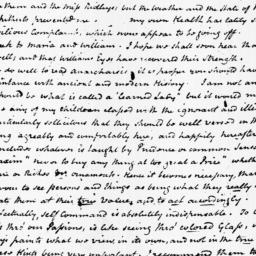 them and the Miss Ridleys, but the weather and the state of th
prevented me. my own Health has lately s
Bilious Complaint, which now appear to be going off
to Maria and William. I hope we shall soon hear tha
well, and that Williams Eyes have recovered their Strength.
do well to read Anacharsis. it is proper you should have
with ancient and modern History. I am not an
should be what is called a 'learned Lady,' but it would m
any of my Children classed with the ignorant and illi
particularly solicitous that they should be well versed in th
agreeably and comfortably here, and happily hereafter
includes whatever is taught by Prudence or common Sense
maxim "never to buy any thing at too great a Price" whethe
or Riches or ornaments. Hence it becomes necessary, tha
you to see persons and things as being what they really
rate them at their true Value, and to act accordingly.
self command is absolutely indispensable. To
thro' our Passions, is like seeing thro' colored Glass, w
paints what we view in its own, and not in the true
being very important. I recommend them to